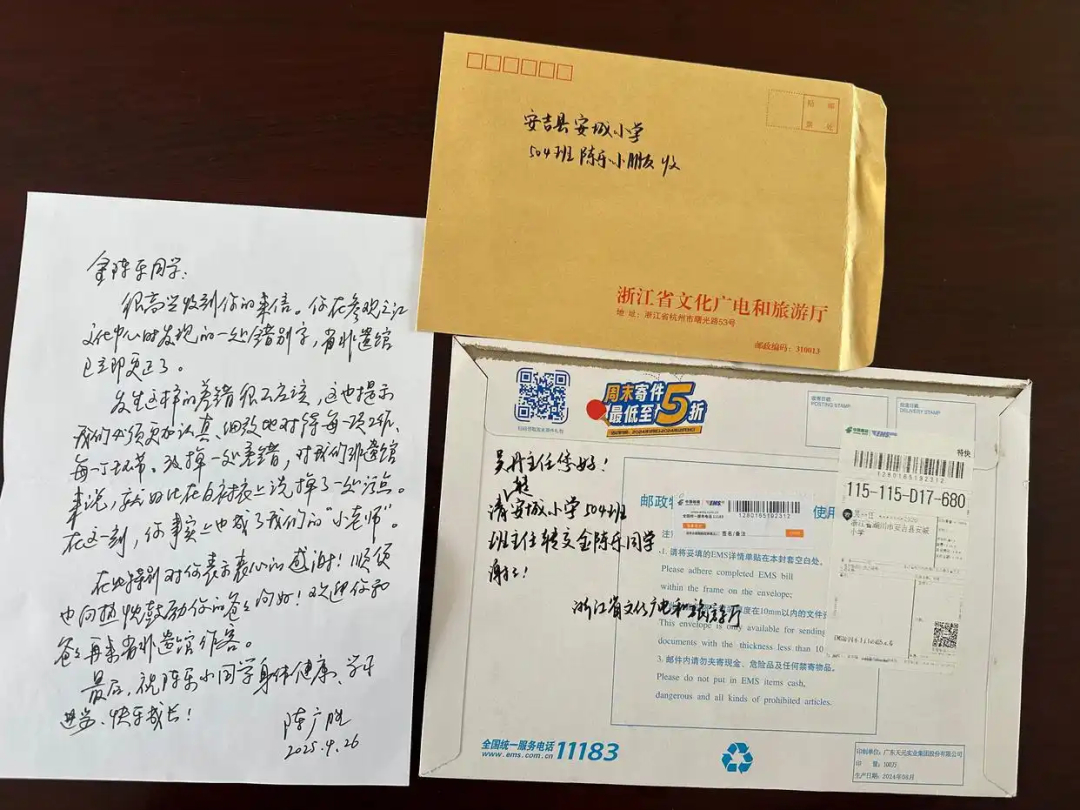 金陈乐同学：
很高兴收到你的来信。你在参观之江
文化中心时发现的一处错别字，省非遗馆
已立即更正了。
发生这样的差错很不应该，这也提示
我们必须更加认真、细致地对待每一项工作、
每一个环节。改掉一处差错，对我们非遗馆
来说，就好比在白衬衣上洗掉了一处污点。
在这一刻，你事实上也成了我们的“小老师”。
在此特别对你表示衷心的感谢！顺便
也向热忱鼓励你的爸爸问好！欢迎你和
爸爸再来省非遗馆作客。
最后，祝陈乐小同学身体健康、学习
进步、快乐成长！
陈广胜
2025.9.26
贴 邮
票 处
安吉县安城小学
504班 陈乐小朋友 收
浙江省文化广电和旅游厅
地 址：浙江省杭州市曙光路53号
邮政编码：310013
周末寄件
最低至5折
POSTING STAMP
DELIVERY STAMP
中国邮政 EMS
特快
1280165192312
115-115-D17-680
吴丹主任您好！
请安城小学504班
班主任转交金陈乐同学
谢谢！
浙江省文化广电和旅游厅
邮政特
中国邮政 EMS
1280165192312
签名/备注
使用
1. 请将妥填的EMS详情单贴在本封套空白处。
Please adhere completed EMS bill
within the frame on the envelope;
度在10mm以内的文件
This envelope is only available for sending
documents with the thickness less than 10
3. 邮件内请勿夹寄现金、危险品及任何禁寄物品。
Please do not put in EMS items cash,
dangerous and all kinds of prohibited articles.
全国统一服务电话 11183
www.ems.com.cn
印制单位：广东天元实业集团股份有限公司
印 量：100万
生产日期：2024年08月